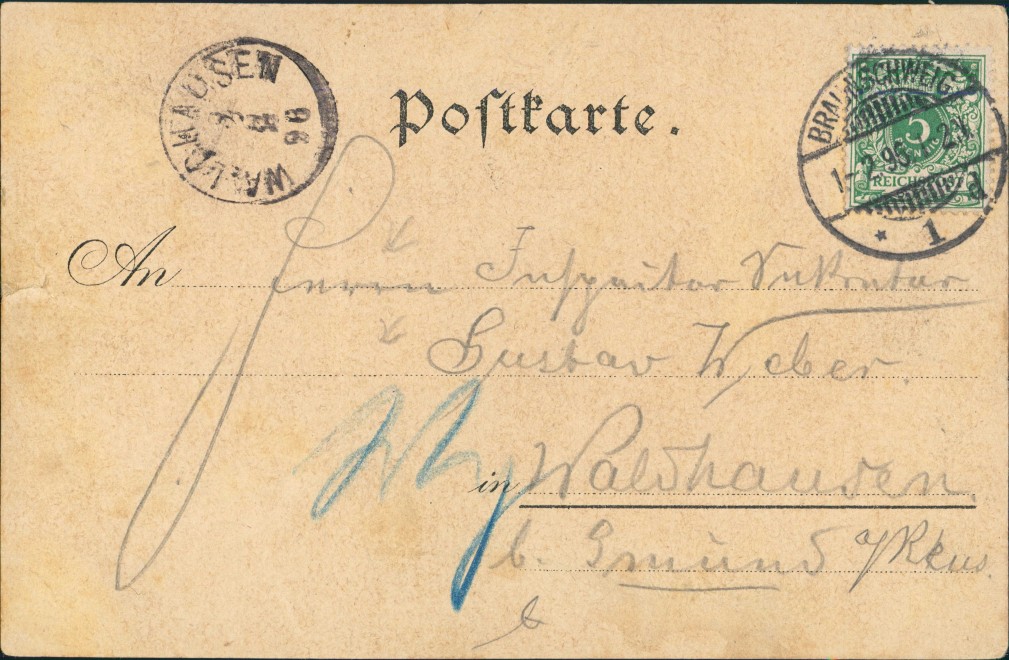 WALDHAUSEN
96
Postkarte.
BRAUNSCHWEIG
1-2.96 2-3N.
* 1 a
5
REICHSPOST
An Herrn Inspektor Sekretär
Gustav Weber.
in Waldhausen.
b. Gmünd